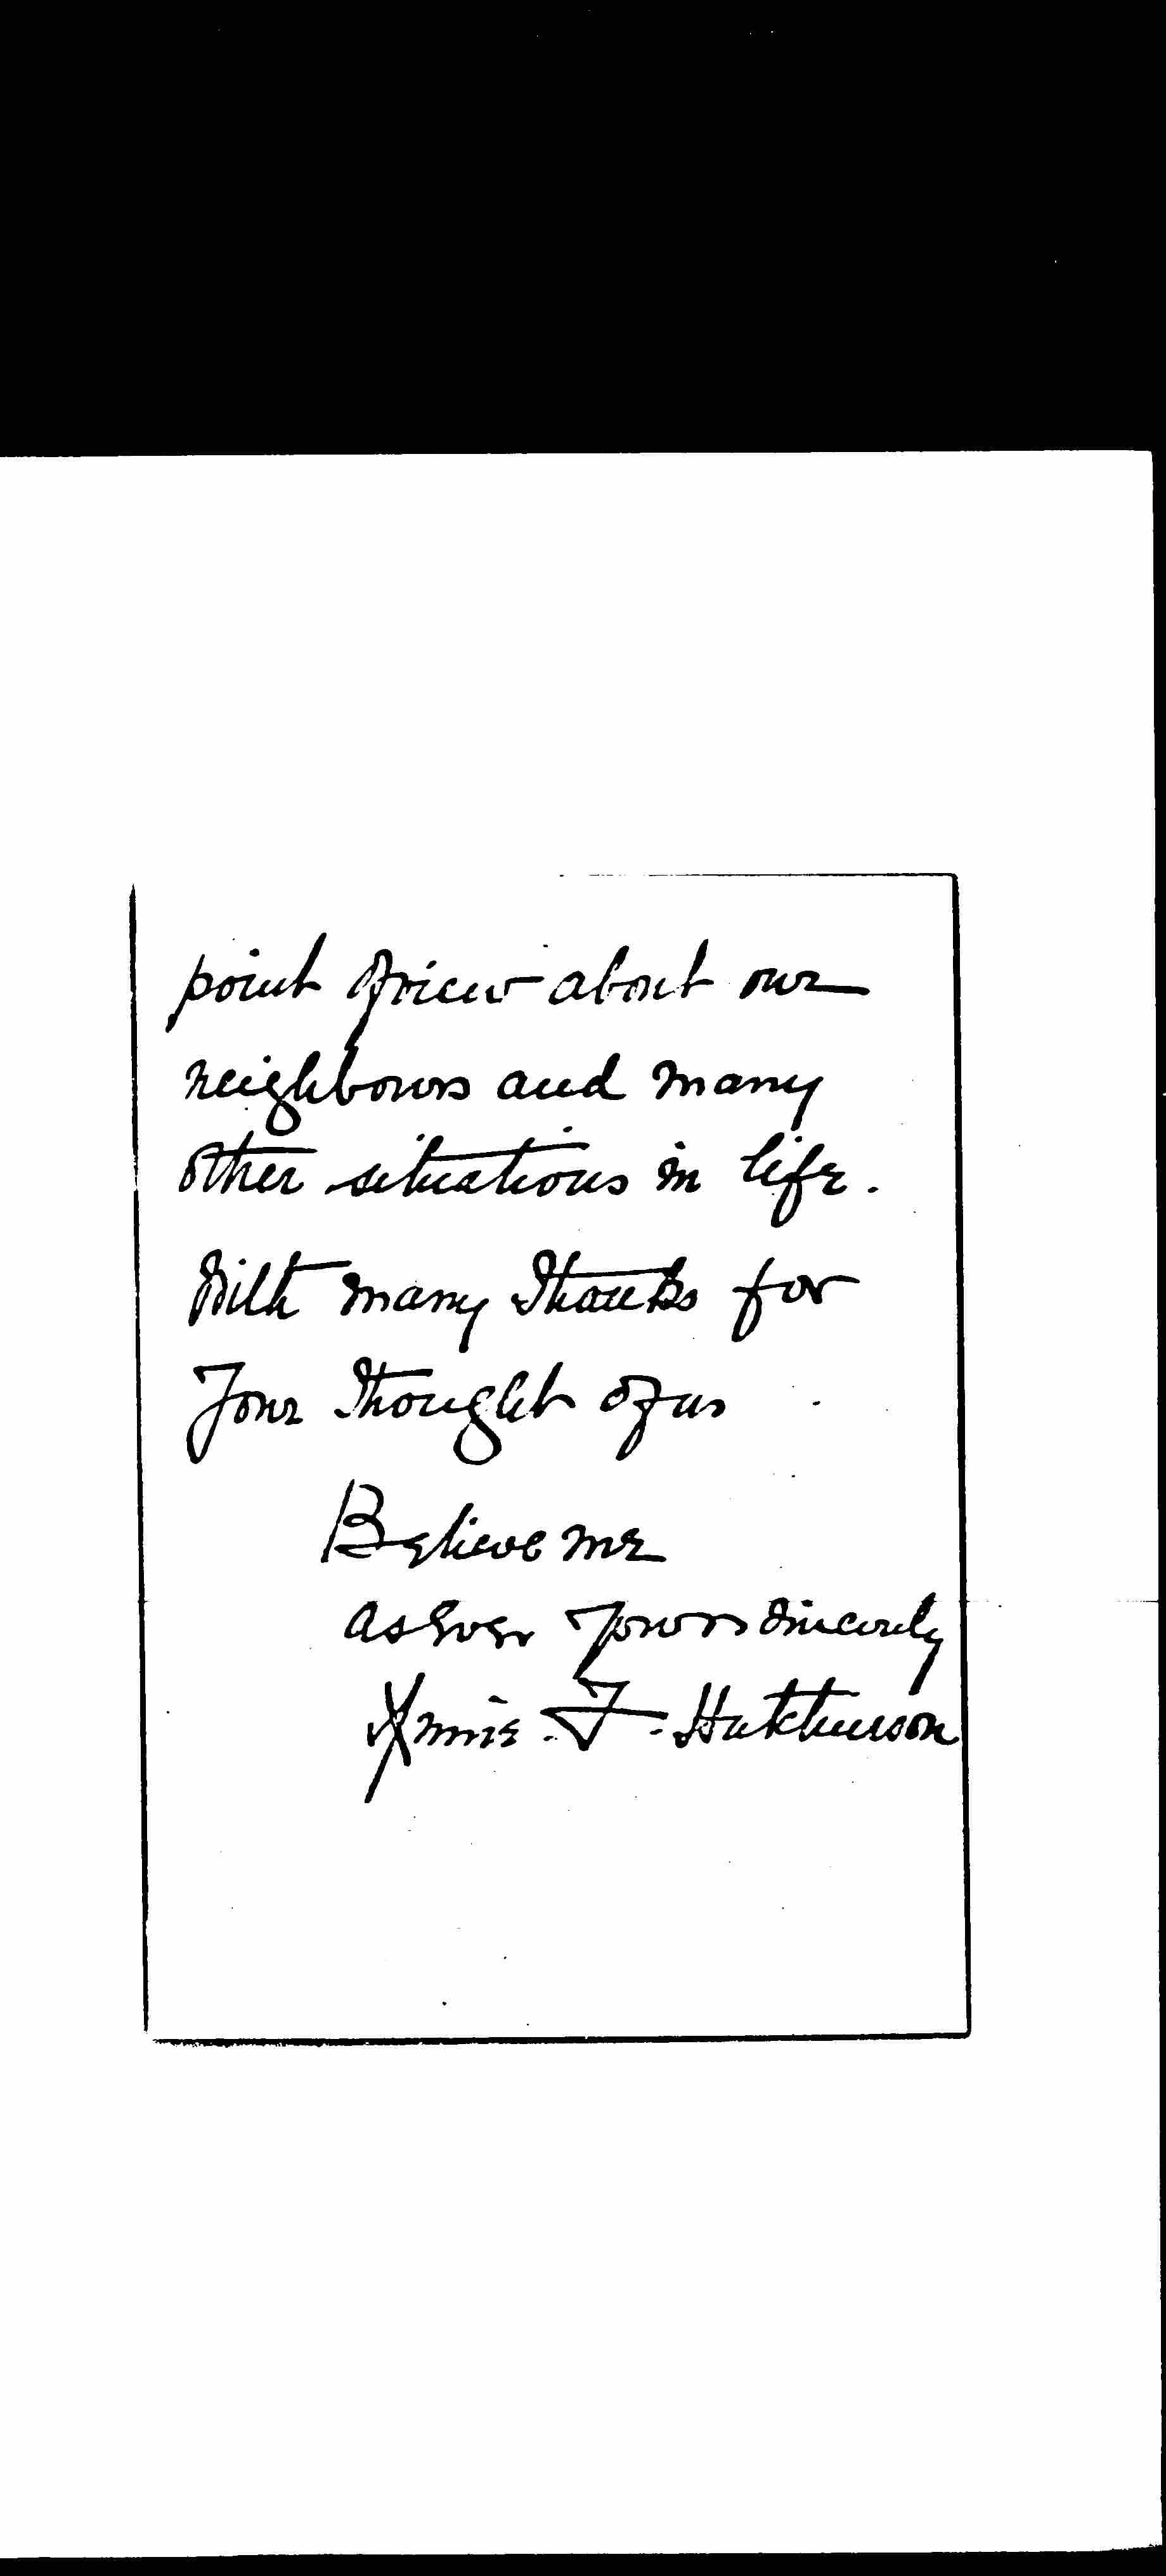 point of view about our
neighbours and many
other situations in life.
With many thanks for
Your thought of us
Believe me
as ever yours sincerely
Annie. F. Hutchinson